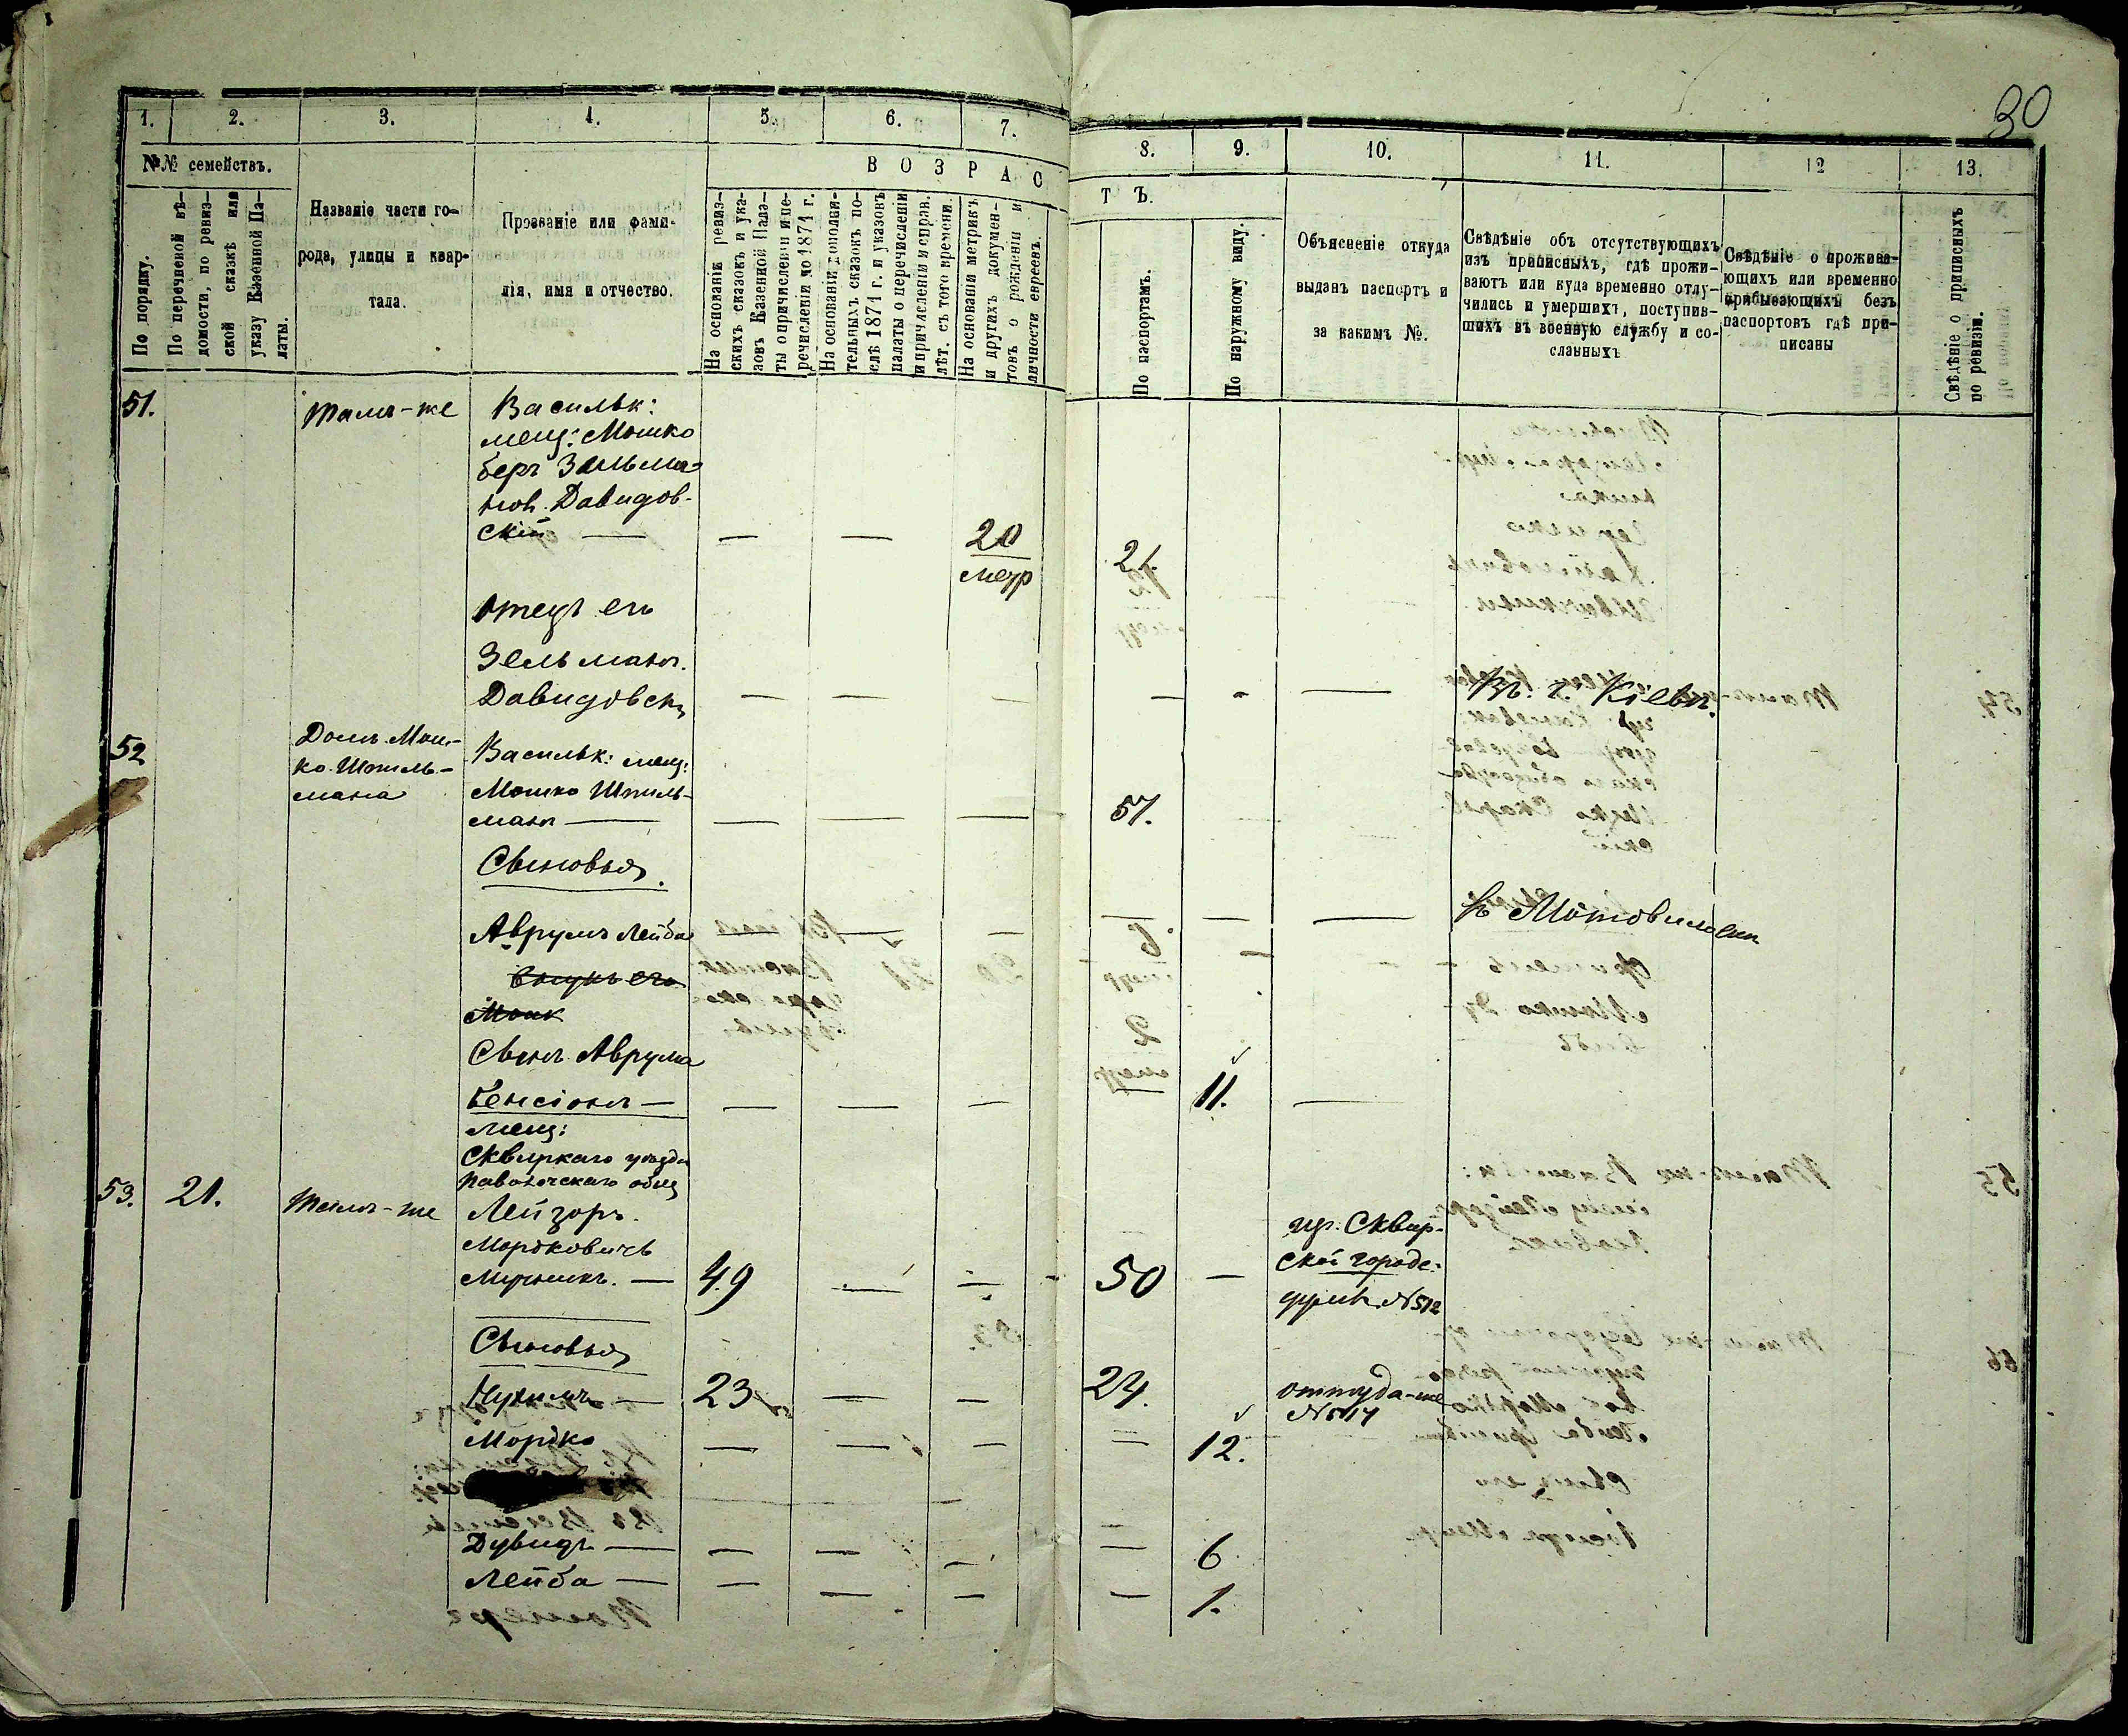 30
1. 2. 3. 4. 5. 6. 7. 8. 9. 10. 11. 12 13.
№№ семействъ.
В О З Р А С Т Ъ.
По порядку.
По перечневой вѣ-
домости, по ревиз-
ской сказкѣ или
указу Казенной Па-
латы.
Названіе части го-
рода, улицы и квар-
тала.
Прозваніе или фами-
лія, имя и отчество.
На основаніи ревиз-
скихъ сказокъ и ука-
зовъ Казенной Пала-
ты о причисленіи и пе-
речисленіи до 1871 г.
На основаніи дополни-
тельныхъ сказокъ по-
слѣ 1871 г. и указовъ
палаты о перечисленіи
и причисленіи и справ.
лѣт. съ того времени.
На основаніи метрикъ
и другихъ докумен-
товъ о рожденіи и
личности евреевъ.
По паспортамъ.
По наружному виду.
Объясненіе откуда
выданъ паспортъ и
за какимъ №.
Свѣдѣніе объ отсутствующихъ
изъ приписныхъ, гдѣ прожи-
ваютъ или куда временно отлу-
чились и умершихъ, поступив-
шихъ въ военную службу и со-
сланныхъ
Свѣдѣніе о прожива-
ющихъ или временно
прибывающихъ безъ
паспортовъ гдѣ при-
писаны
Свѣдѣніе о приписныхъ
по ревизіи.
51. тамъ-же Васильк:
мещ: Мошко
беръ Зельма-
нов. Давидов-
скій — — — 20 21.
метр
отецъ его
Зельманъ
Давидовск — — — — - — Въ г. Кіевѣ.
52 Домъ Мош-
ко Шпиль-
мана
Васильк: мещ:
Мошко Шпиль-
манъ — — — — 57.
Сыновья.
Аврумъ Лейба — — — — — — в Мотовиловк
внукъ его
Мошк
Сынъ Аврума
Бенсіонъ — — — — 11. —
мещ:
Сквиркаго уѣзда
Паволочскаго общ
53. 21. тамъ-же Лейзоръ
Мордковичъ
Мучникъ. — 49 — — 50 —
Сквир-
ской городс:
№512
Сыновья
Нухимъ — 23 — — 24. оттуда-же
Мордко — — — — 12.
Дувидъ — — — — — 6
Лейба — — — — — 1.